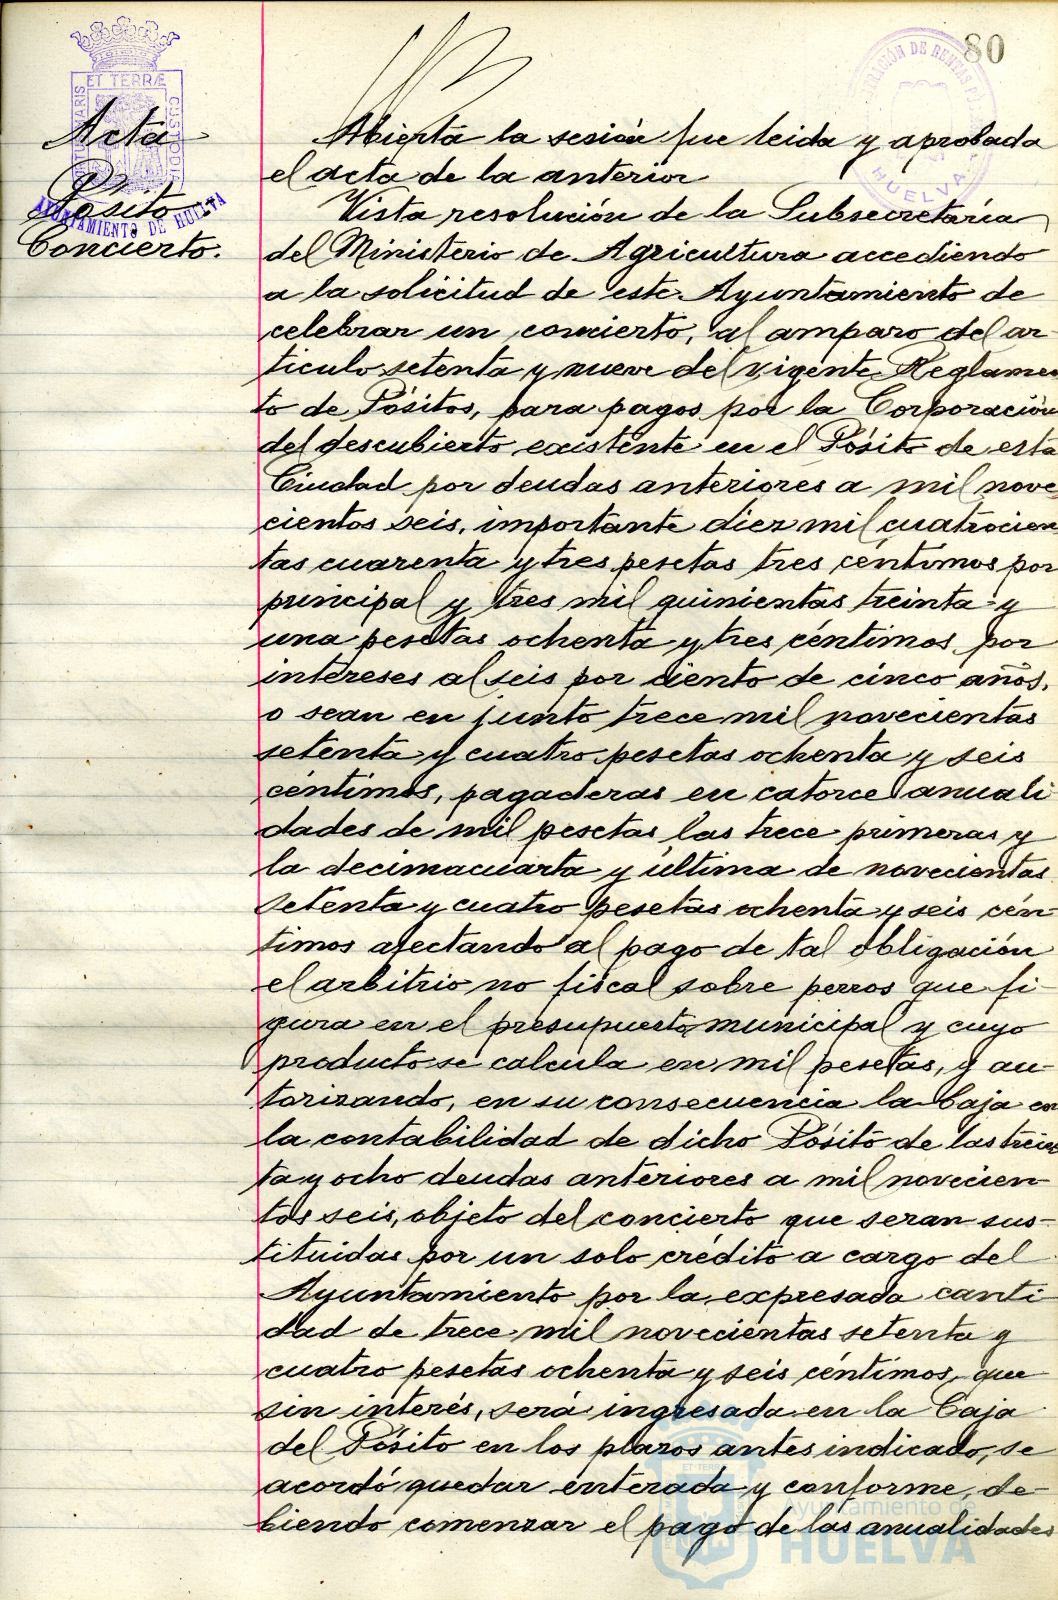 80
Acta
Pósito
Concierto.
Abierta la sesión fue leida y aprobada
el acta de la anterior
Vista resolución de la Subsecretaría
del Ministerio de Agricultura accediendo
a la solicitud de este Ayuntamiento de
celebrar un concierto, al amparo del ar-
ticulo setenta y nueve del vigente Reglamen
to de Pósitos, para pagos por la Corporación
del descubierto existente en el Pósito de esta
Ciudad por deudas anteriores a mil nove
cientos seis, importante diez mil cuatrocien
tas cuarenta y tres pesetas tres céntimos por
principal y tres mil quinientas treinta y
una pesetas ochenta y tres céntimos por
intereses al seis por ciento de cinco años,
o sean en junto trece mil novecientas
setenta y cuatro pesetas ochenta y seis
céntimos, pagaderas en catorce anuali
dades de mil pesetas las trece primeras y
la decimacuarta y última de novecientas
setenta y cuatro pesetas ochenta y seis cén-
timos afectando al pago de tal obligación
el arbitrio no fiscal sobre perros que fi-
gura en el presupuesto municipal y cuyo
producto se calcula en mil pesetas, y au-
torizando, en su consecuencia la baja en
la contabilidad de dicho Pósito de las trein
ta y ocho deudas anteriores a mil novecien-
tos seis, objeto del concierto que seran sus-
tituidas por un solo crédito a cargo del
Ayuntamiento por la expresada canti-
dad de trece mil novecientas setenta y
cuatro pesetas ochenta y seis céntimos, que
sin interés, será ingresada en la Caja
del Pósito en los plazos antes indicado, se
acordó quedar enterada y conforme, de-
biendo comenzar el pago de las anualidades
ET TERRÆ
CUSTODIA
AYUNTAMIENTO DE HUELVA
HUELVA
Ayuntamiento de
HUELVA